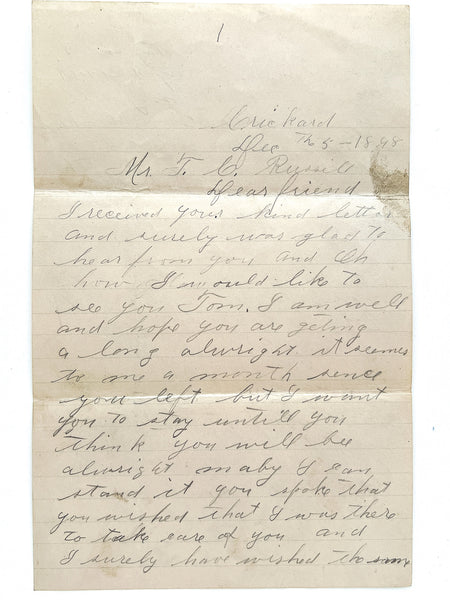 1
Crickard
Dec Th 5 - 1898
Mr. T. C. Russell
Dear friend
I received your kind letter
and surely was glad to
hear from you and Oh
how I would like to
see you Tom. I am well
and hope you are geting
a long alwright it seemes
to me a month since
you left but I want
you to stay untill you
think you will be
alwright maby I can
stand it you spoke that
you wished that I was there
to take care of you and
I surely have wished the same